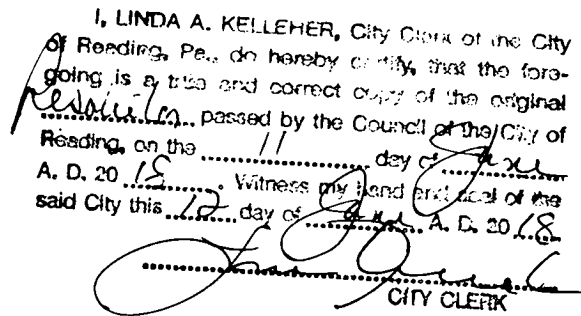 I, LINDA A. KELLEHER, City Clerk of the City
of Reading, Pa., do hereby certify, that the fore-
going is a true and correct copy of the original
Resolution passed by the Council of the City of
Reading, on the 11 day of June
A. D. 2018. Witness my hand and seal of the
said City this 12 day of June A. D. 2018
CITY CLERK